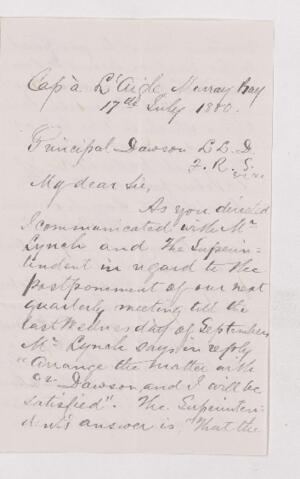 Cap à L'Aigle, Murray Bay
17th July 1880.
Principal Dawson L L. D.
F. R. S.
My dear Sir,
As you directed
I communicated with Mr
Lynch and the Superin-
tendent in regard to the
postponement of our next
quarterly meeting till the
last Wednesday of September.
Mr Lynch says in reply
"Arrange the matter with
Dr Dawson and I will be
satisfied". The Superinten-
dent's answer is, "That the